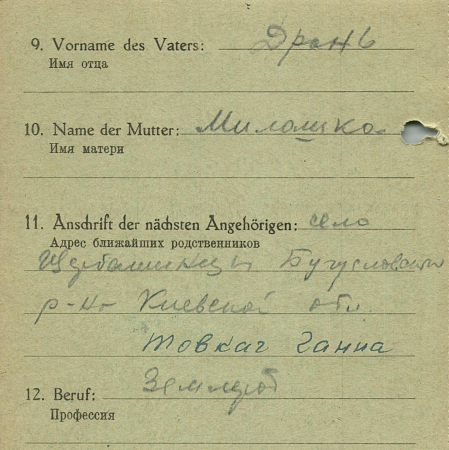 9. Vorname des Vaters: Дрань
Имя отца
10. Name der Mutter: Милошка
Имя матери
11. Anschrift der nächsten Angehörigen: село
Адрес ближайших родственников
р-но Киевской обл
Товкач Ганна
12. Beruf: Землероб
Профессия